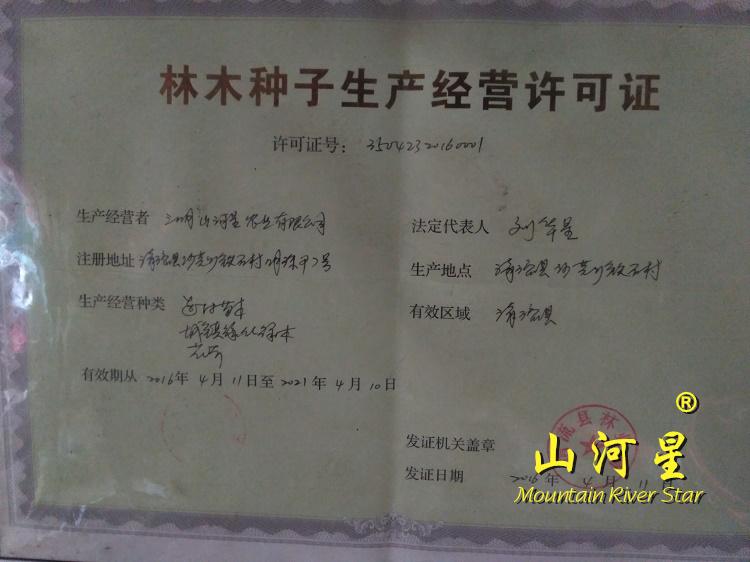 林木种子生产经营许可证
许可证号: 35042320160001
生产经营者 三明山河星农业有限公司
法定代表人 刘华星
注册地址 清流县沙芜乡铁石村
生产地点 清流县沙芜乡铁石村
生产经营种类
城镇绿化苗木
花卉
有效区域 清流县
有效期从 2016年 4月 11日至 2021年 4月 10日
流县林
发证机关盖章
发证日期 2016年 4月 11日
山河星®
Mountain River Star